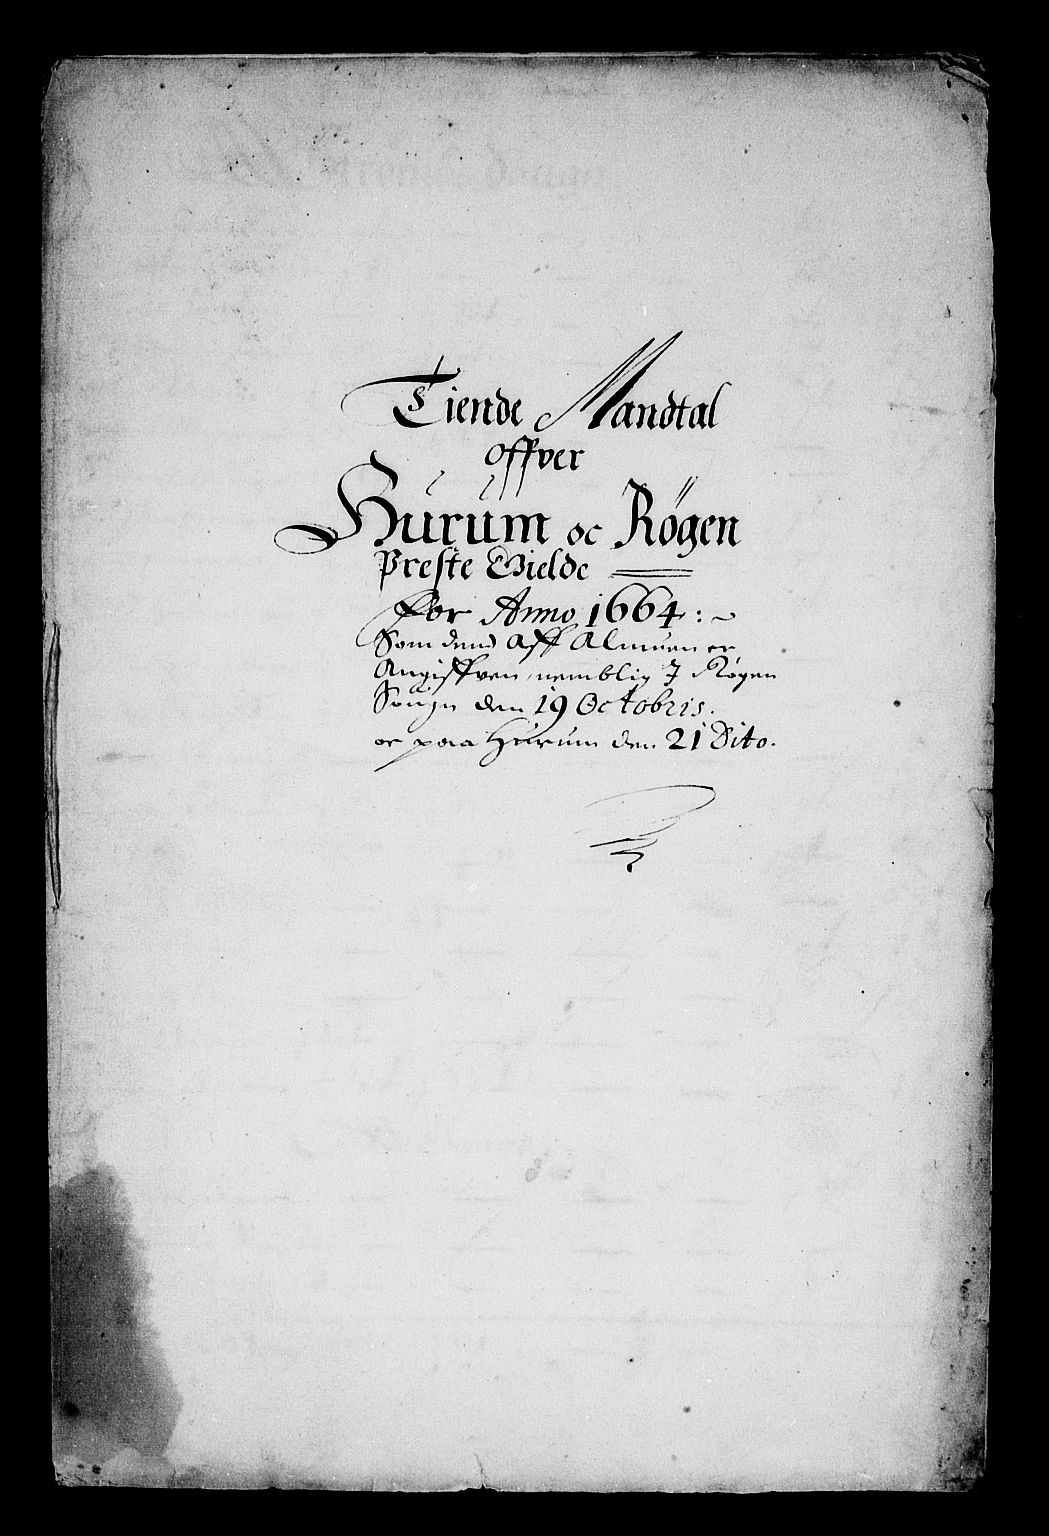 Tiende Mandtal
offver
Hurum oc Røgen
Preste Gielde
for Anno 1664:~
Som dend aff Almuen er
Angiffven, nemblig J Røgen
Sougn den 19 Octobris.
oc paa Hurum den 21 Dito.